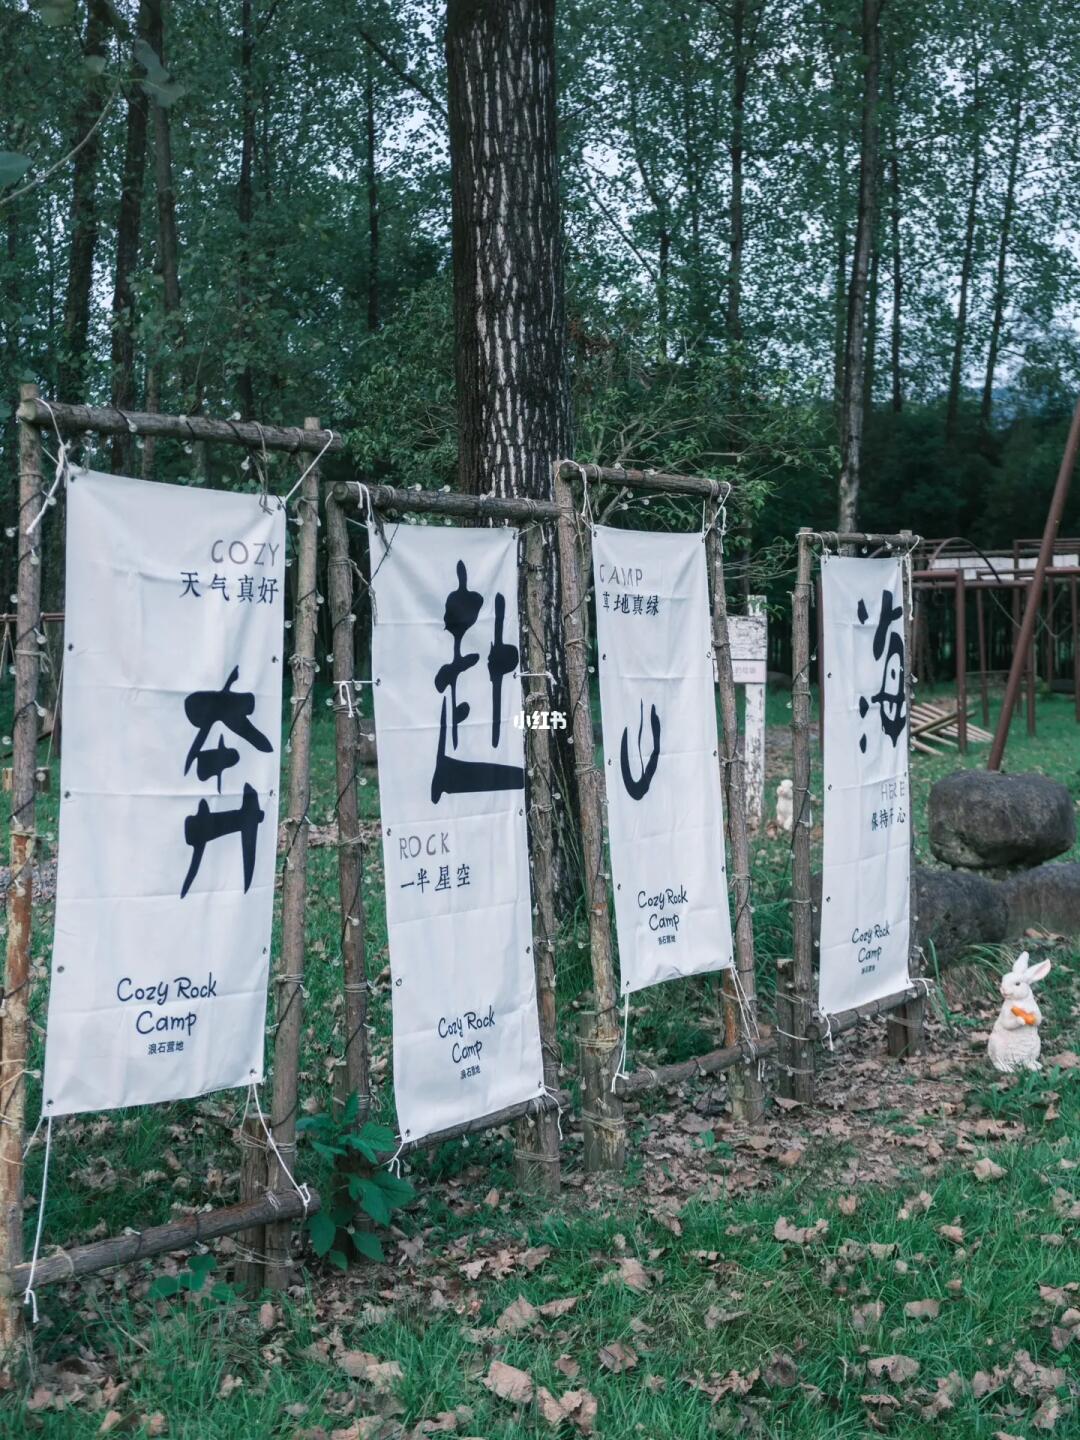 COZY
天气真好
奔
Cozy Rock
Camp
浪石营地
赴
ROCK
一半星空
Cozy Rock
Camp
浪石营地
CAMP
草地真绿
山
Cozy Rock
Camp
浪石营地
海
HERE
保持开心
Cozy Rock
Camp
浪石营地
小红书